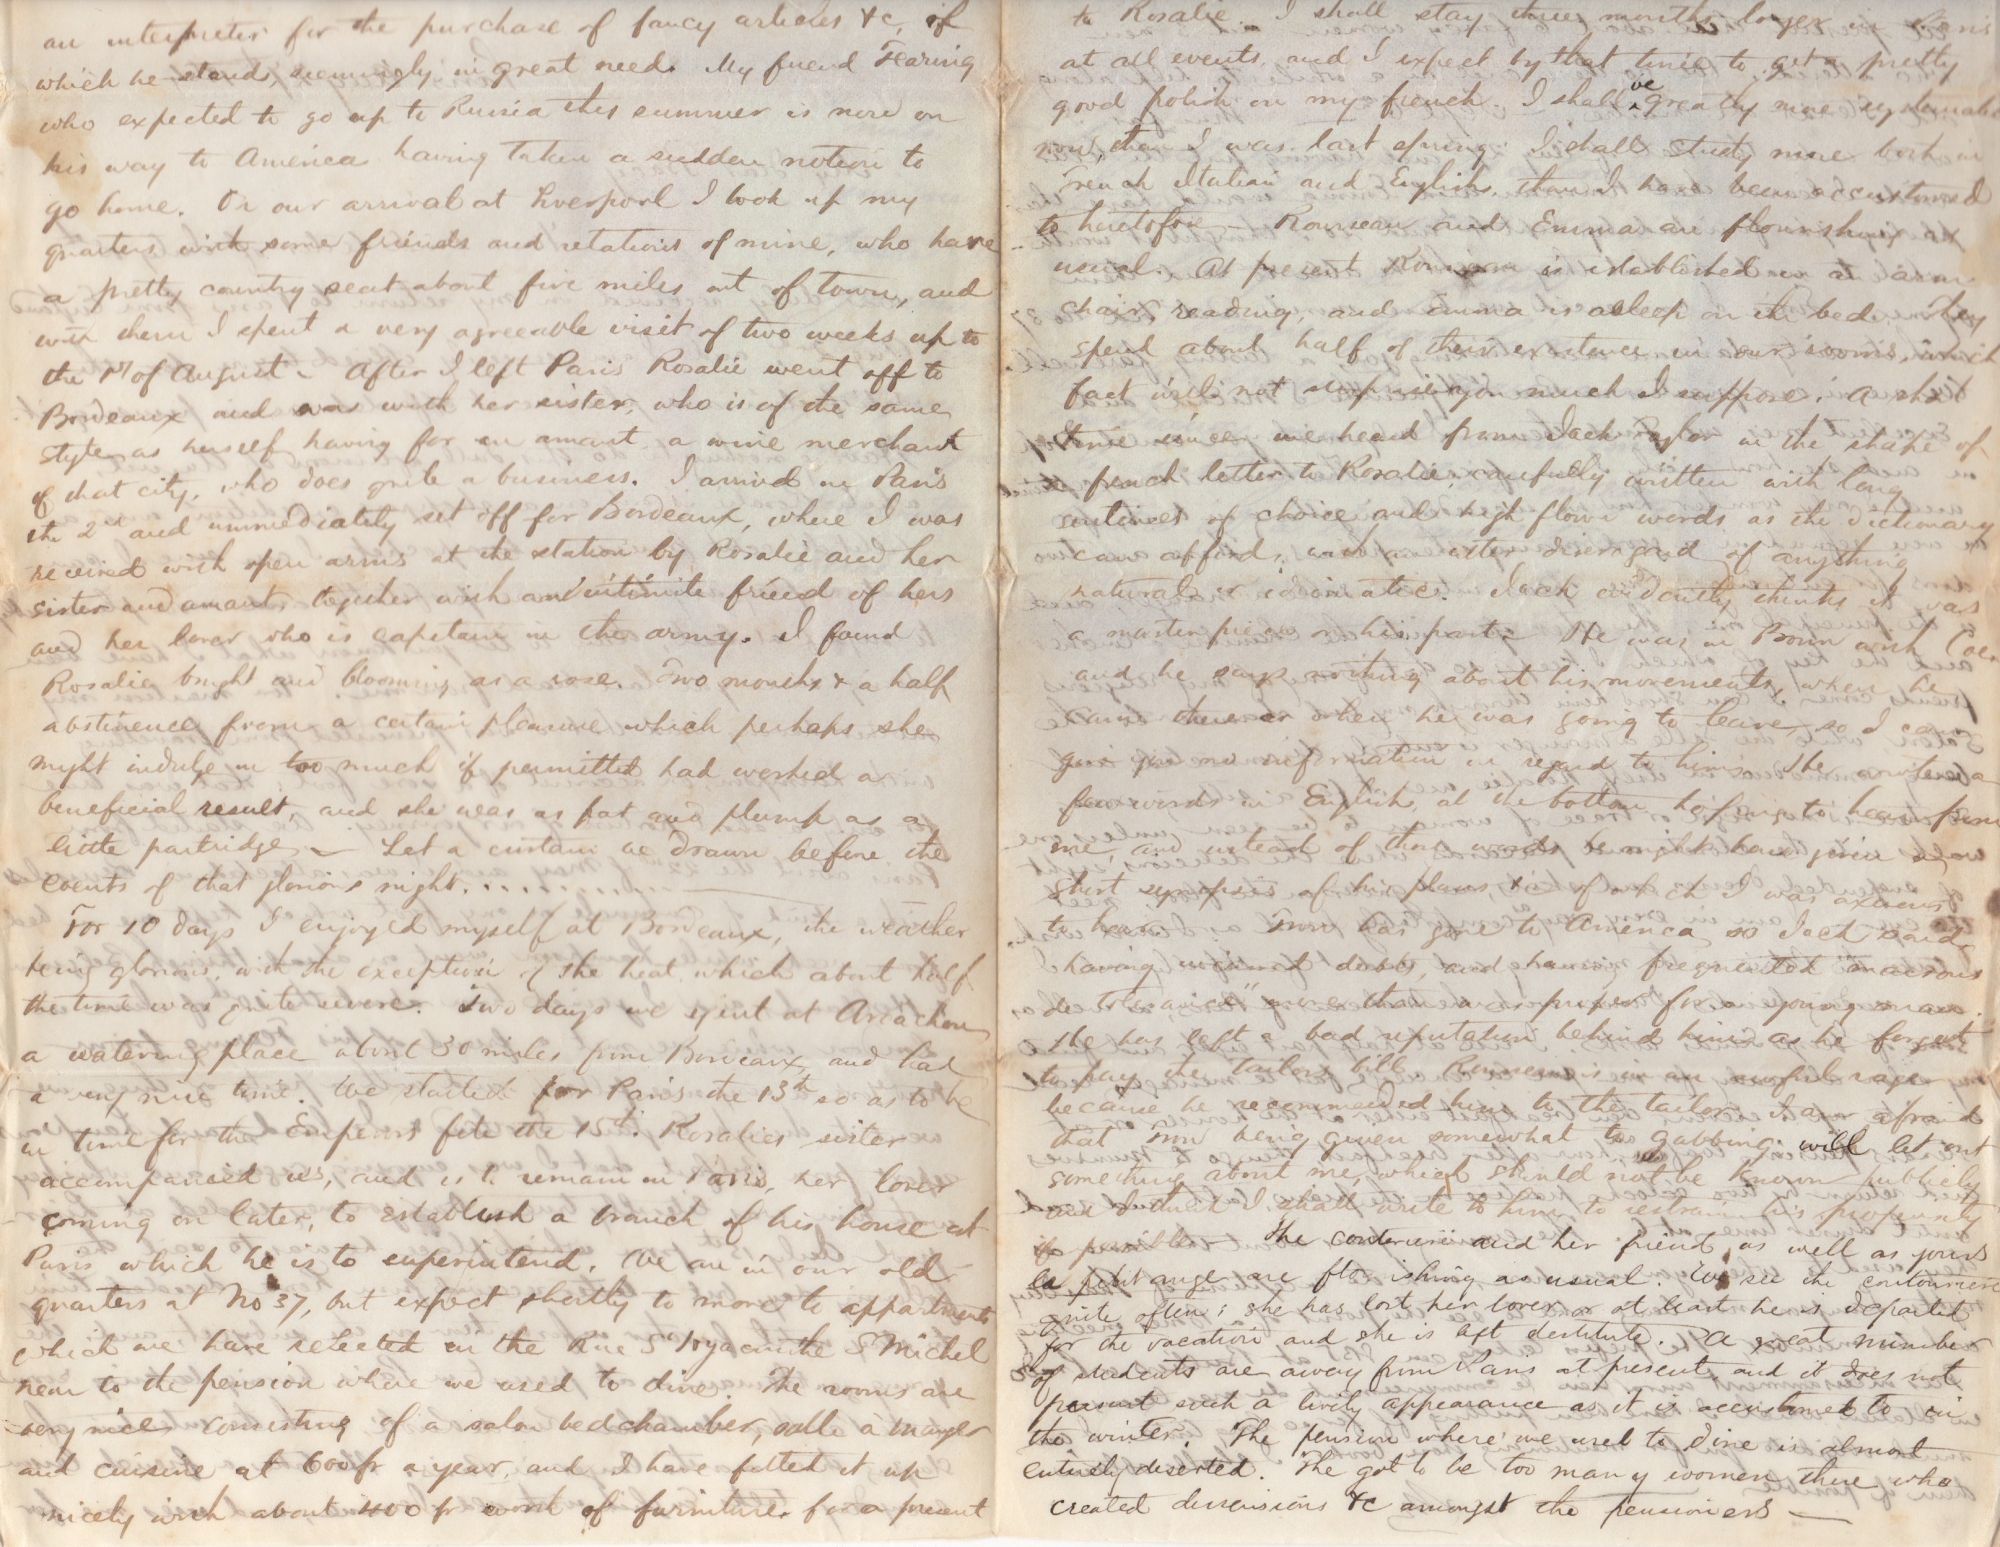 an interpreter for the purchase of fancy articles &c, of
which he stands, seemingly in great need. My friend Fearing
who expected to go up to Russia this summer is now on
his way to America having taken a sudden notion to
go home. On our arrival at Liverpool I took up my
quarters with some friends and relations of mine, who have
a pretty country seat about five miles out of town, and
with them I spent a very agreeable visit of two weeks up to
the 1st of August. After I left Paris Rosalie went off to
Bordeaux and was with her sister, who is of the same
style as herself having for an amant a wine merchant
of that city, who does quite a business. I arrived in Paris
the 2d and immediately set off for Bordeaux, where I was
received with open arms at the station by Rosalie and her
sister and amant, together with an intimite friend of hers
and her lover who is captain in the army. I found
Rosalie bright and blooming as a rose. Two months & a half
abstinence from a certain pleasure which perhaps she
might indulge in too much if permitted had worked a
beneficial result, and she was as fat and plump as a
little partridge — Let a curtain be drawn before the
events of that glorious night. . . . . . . . . . . . .
For 10 days I enjoyed myself at Bordeaux, the weather
being glorious, with the exception of the heat which about half
the time was quite severe. Two days we spent at Arcachon
a watering place about 30 miles from Bordeaux, and had
a very nice time. We started for Paris the 13th so as to be
in time for the Emperors fete the 15th. Rosalies sister
accompanied us, and is to remain in Paris, her lover
coming on later, to establish a branch of his house at
Paris which he is to superintend. We are in our old
quarters at No 37, but expect shortly to move to appartments
which we have selected in the Rue St Hyacinthe St Michel
near to the pension where we used to dine. The rooms are
very nice consisting of a salon bedchamber, salle a manger
and cuisine at 600 fr a year, and I have fitted it up
nicely with about 400 fr worth of furniture for a present
to Rosalie. I shall stay three months longer in Paris
at all events, and I expect by that time to get a pretty
good polish on my french. I shall ve greatly more systematic
now, than I was last spring. I shall study more both in
French Italian and English than I have been accustomed
to heretofore — Rousseau and Emma are flourishing as
usual. At present Rousseau is established in an arm
chair, reading, and Emma is asleep on the bed. They
spend about half of their existence in our rooms, which
fact will not surprise you much I suppose. A short
time since we heard from Jack Taylor in the shape of
a french letter to Rosalie, carefully written with long
sentences of choice and high flown words as the dictionary
can afford, with an utter disregard of anything
natural or idiomatic. Jack evidently thinks it was
a masterpiece on his part. He was in Bonn with
and he says nothing about his movements, when he
came there or when he was going to leave, so I can
give you no information in regard to him. He writes a
few words in English, at the bottom hoping to hear from
me, and instead of those words he might have given a
short synopsis of his plans, &c of which I was anxious
to hear. has gone to America, so Jack said,
having incurred debts, and having frequented "maisons
de tolerance" more than was proper for a young man.
He has left a bad reputation behind him as he forgot
to pay the tailors bill. Rousseau is in an awful rage
because he recommended him to the tailor. I am afraid
that being given somewhat to gabbing will let out
something about me, which should not be known publicly
and I think I shall write to him to restrain his propensity
if possible — The couturiere and her friend, as well as yours
le petit ange are flourishing as usual. We see the couturiere
quite often; she has lost her lover or at least he is departed
for the vacation and she is left destitute. A great number
of students are away from Paris at present, and it does not
present such a lively appearance as it is accustomed to in
the winter. The pension where we used to dine is almost
entirely deserted. The got to be too many women there who
created dissensions &c amongst the pensioners —